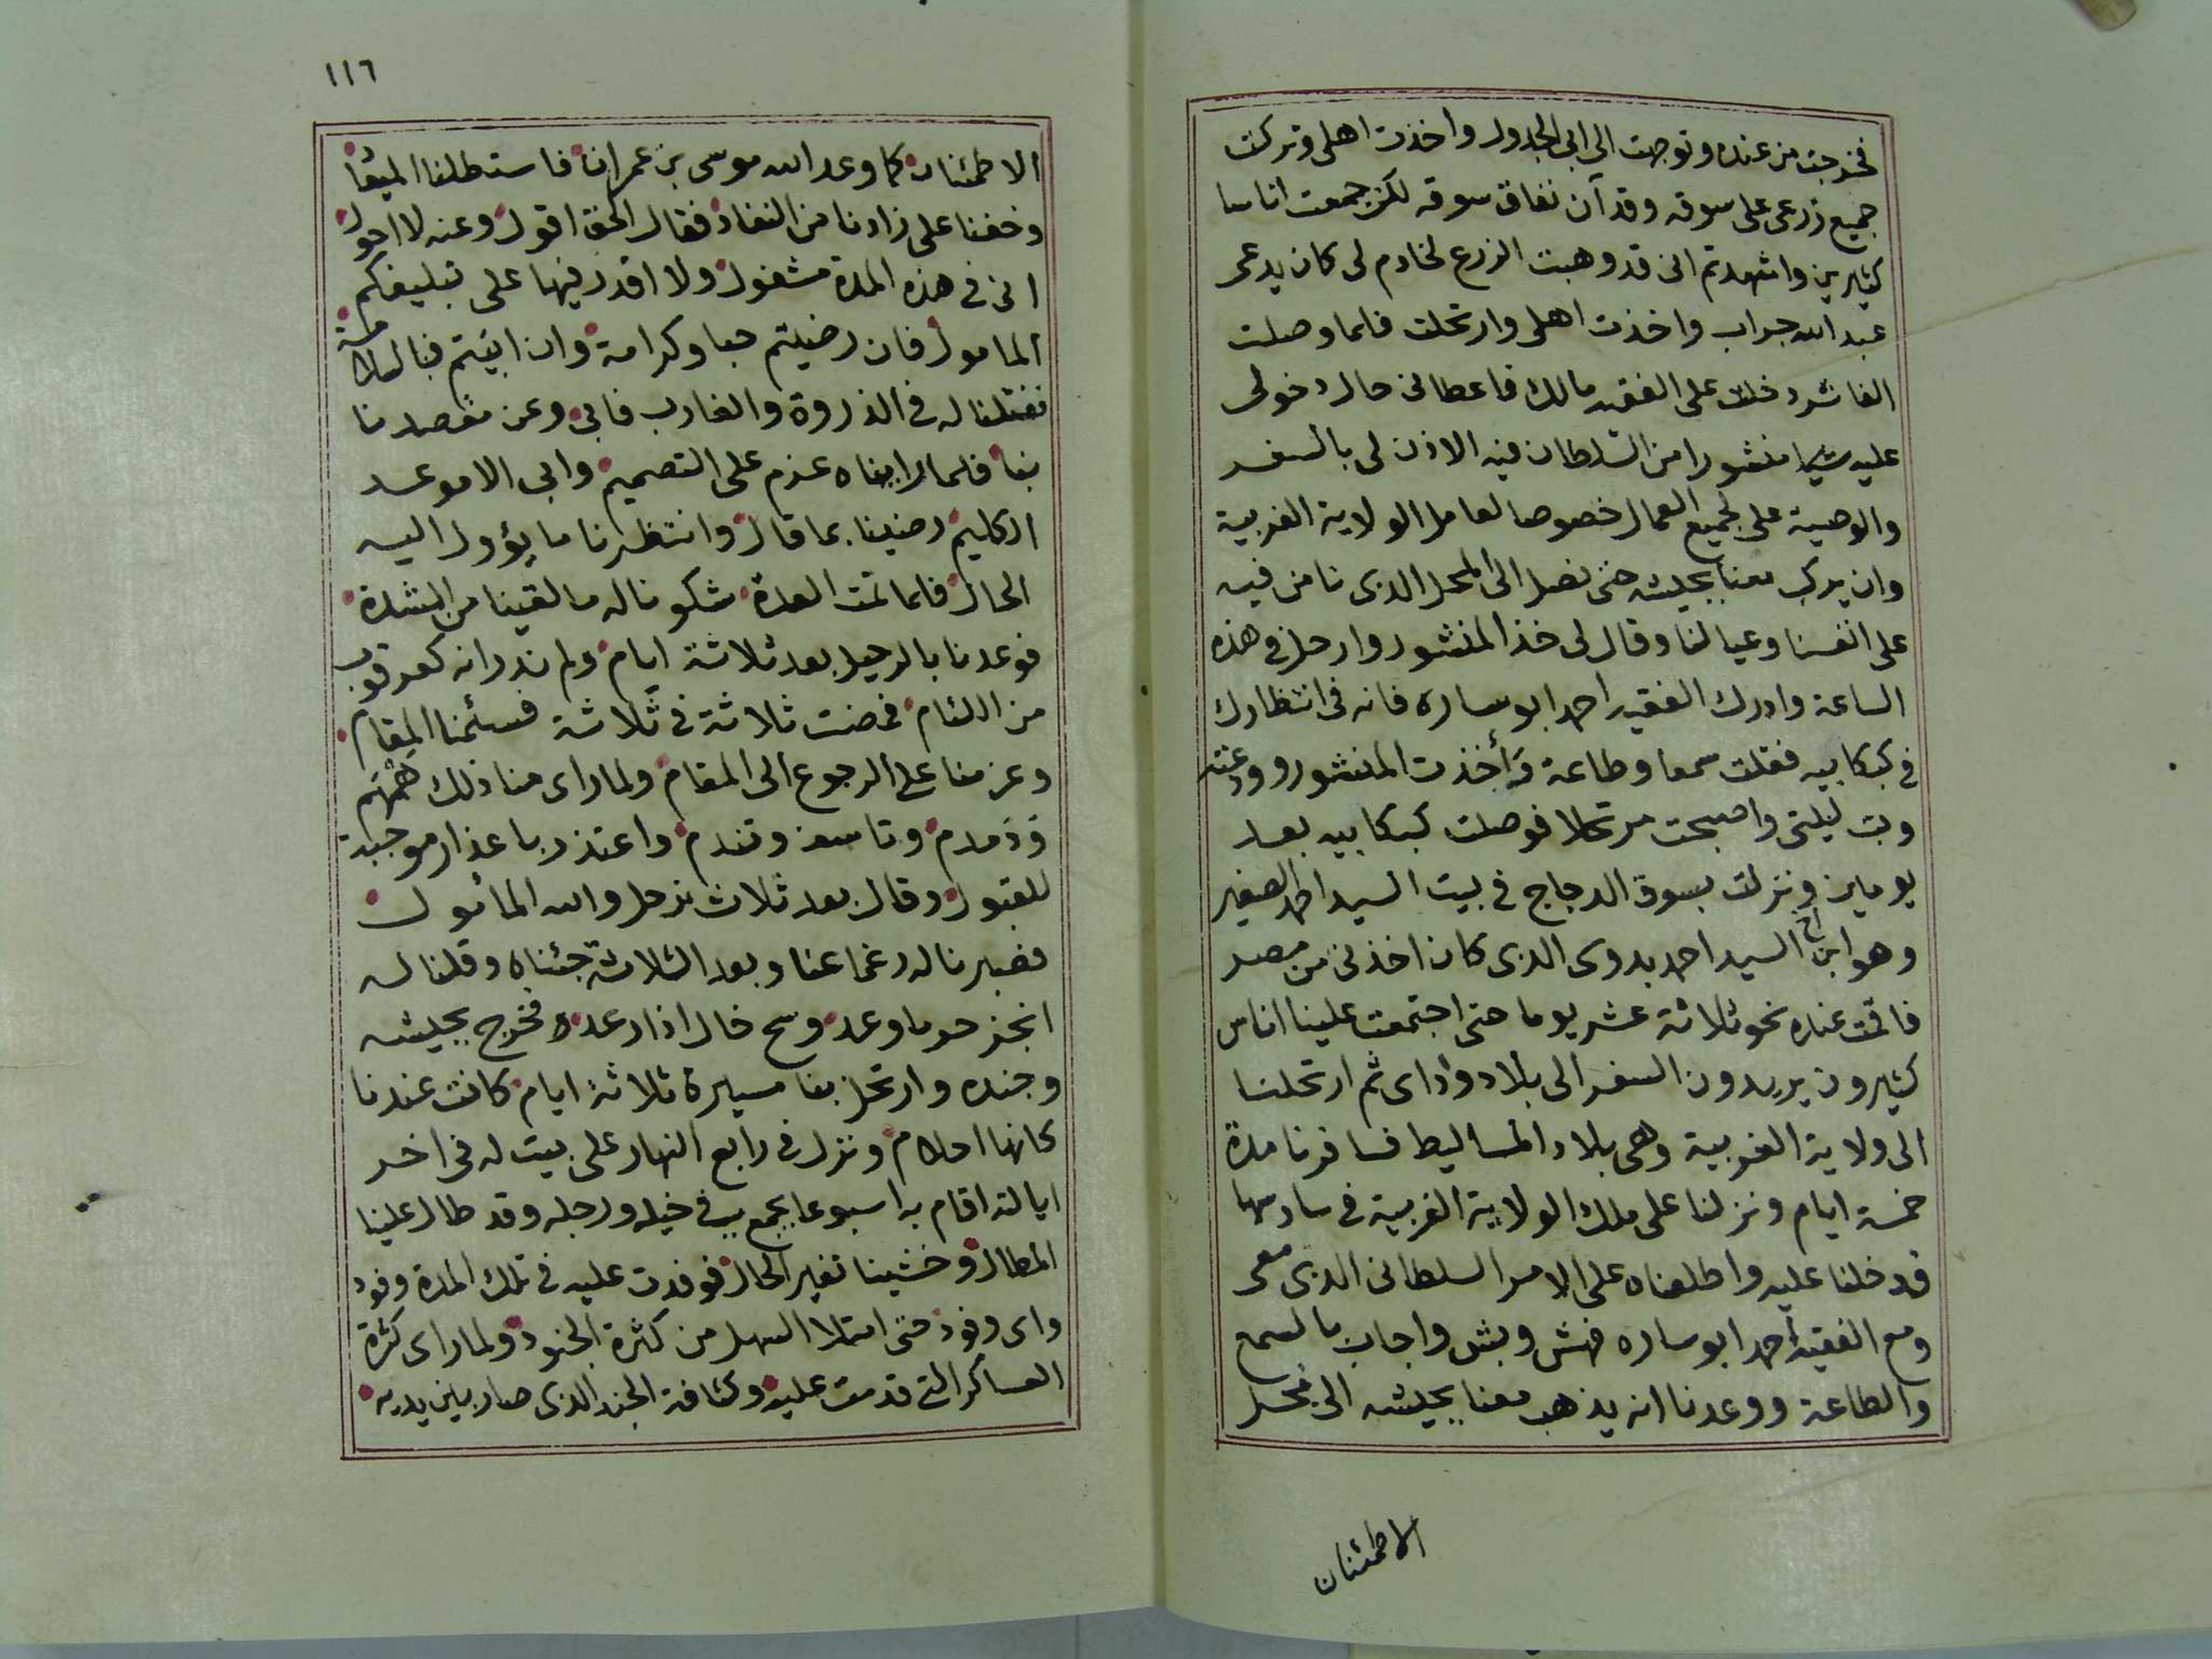 فخرجت من عنده وتوجهت الى ابى الجدول واخذت اهلى وتركت
جميع زرعى على سوقه وقد آن نفاق سوقه لكن جمعت اناسا
كثيرين واشهدتم انى قد وهبت الزرع لخادم لى كان يدعى
عبد الله جراب واخذت اهلى وارتحلت فلما وصلت
الفاشر دخلت على الفقيه مالك فاعطانى حال دخولى
عليه منشورا من السلطان فيه الاذن لى بالسفر
والوصية على لجميع العمال خصوصا لعامل الولاية الغربية
وان يركب معنا بجيشه حتى نصل الى المحل الذى نامن فيه
على انفسنا وعيالنا وقال لى خذ المنشور وارحل فى هذه
الساعة وادرك الفقيه احمد ابو ساره فانه فى انتظارك
فى كبكابيه فقلت سمعا وطاعة وأخذت المنشور وودعته
وبت ليلتى واصبحت مرتحلا فوصلت كبكابيه بعد
يومين ونزلت بسوق الدجاج فى بيت السيد احمد الصغير
وهو ابن اخ السيد احمد بدوى الذى كان اخذنى من مصر
فاقمت عنده نحو ثلاثة عشر يوما حتى اجتمعت علينا اناس
كثيرون يريدون السفر الى بلاد واداى ثم ارتحلنا
الى ولاية الغربية وهى بلاد المساليط فسافرنا مدة
خمسة ايام ونزلنا على ملك الولاية الغربية فى سادسها
فدخلنا عليه واطلعناه على الامر السلطانى الذى معى
ومع الفقيه احمد ابو ساره فهش وبش واجاب بالسمع
والطاعة ووعدنا انه يذهب معنا بجيشه الى محل
الاطمئنان
١١٦
الاطمئنان كما وعد الله موسى بن عمران فاستطلنا الميقا
وخفنا على زادنا من النفاد فقال الحق اقول وعنه لا احول
انى فى هذه المدة مشغول ولا اقدر فيها على تبليغكم
المامول فان رضيتم حبا وكرامة وان ابيتم فبالسلامة
ففتلنا له فى الذروة والغارب فابى وعن مقصدنا
بنا فلما رايناه عزم على التصميم وابى الا موعد
الكليم رضينا بما قال وانتظرنا ما يؤول اليه
الحال فلما تمت العدة شكونا له ما لقينا من الشدة
فوعدنا بالرحيل بعد ثلاثة ايام ولم ندر انه كعرقوب
من اللئام فمضت ثلاثة فى ثلاثة فسئمنا المقام
وعزمنا على الرجوع الى المقام ولما راى منا ذلك همهم
ودمدم وتاسف وتندم واعتذر باعذار موجبة
للقبول وقال بعد ثلاث نرحل والله المائول
فصبرنا له رغما عنا وبعد الثلاثة جئناه وقلنا له
انجز حر ما وعد وسح خال اذا رعد فخرج بجيشه
وجنده وارتحل بنا مسيرة ثلاثة ايام كانت عندنا
كانها احلام ونزل فى رابع النهار على بيت له فى اخر
ايالته اقام به اسبوعا يجمع فى خيله ورجله وقد طال علينا
المطال وخشينا تغير الحال فوفدت عليه فى تلك المدة وفود
واى وفود حتى امتلا السهل من كثرة الجنود ولما راى كثرة
العساكر التى قدمت عليه وكثافة الجند الذى صار بين يديه